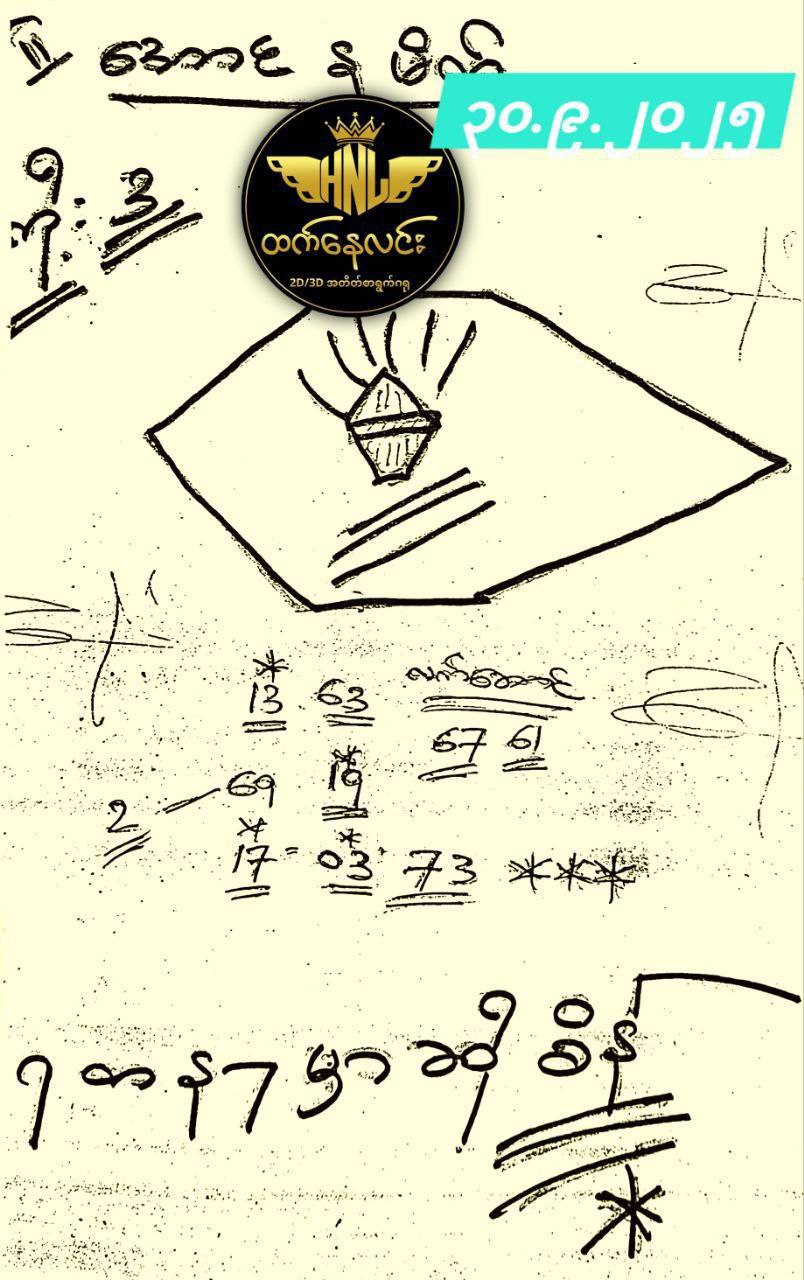 အောင် န မိတ်
၃၀.၉.၂၀၂၅
ကိုး 3
HNL
ထက်နေလင်း
2D/3D အတိတ်စာရွက်ဂရု
13 63 လက်အောင်
67 61
69 19
2
17 03 73 ***
ရတနာ ၇ မှာ ဆို စိန်
*